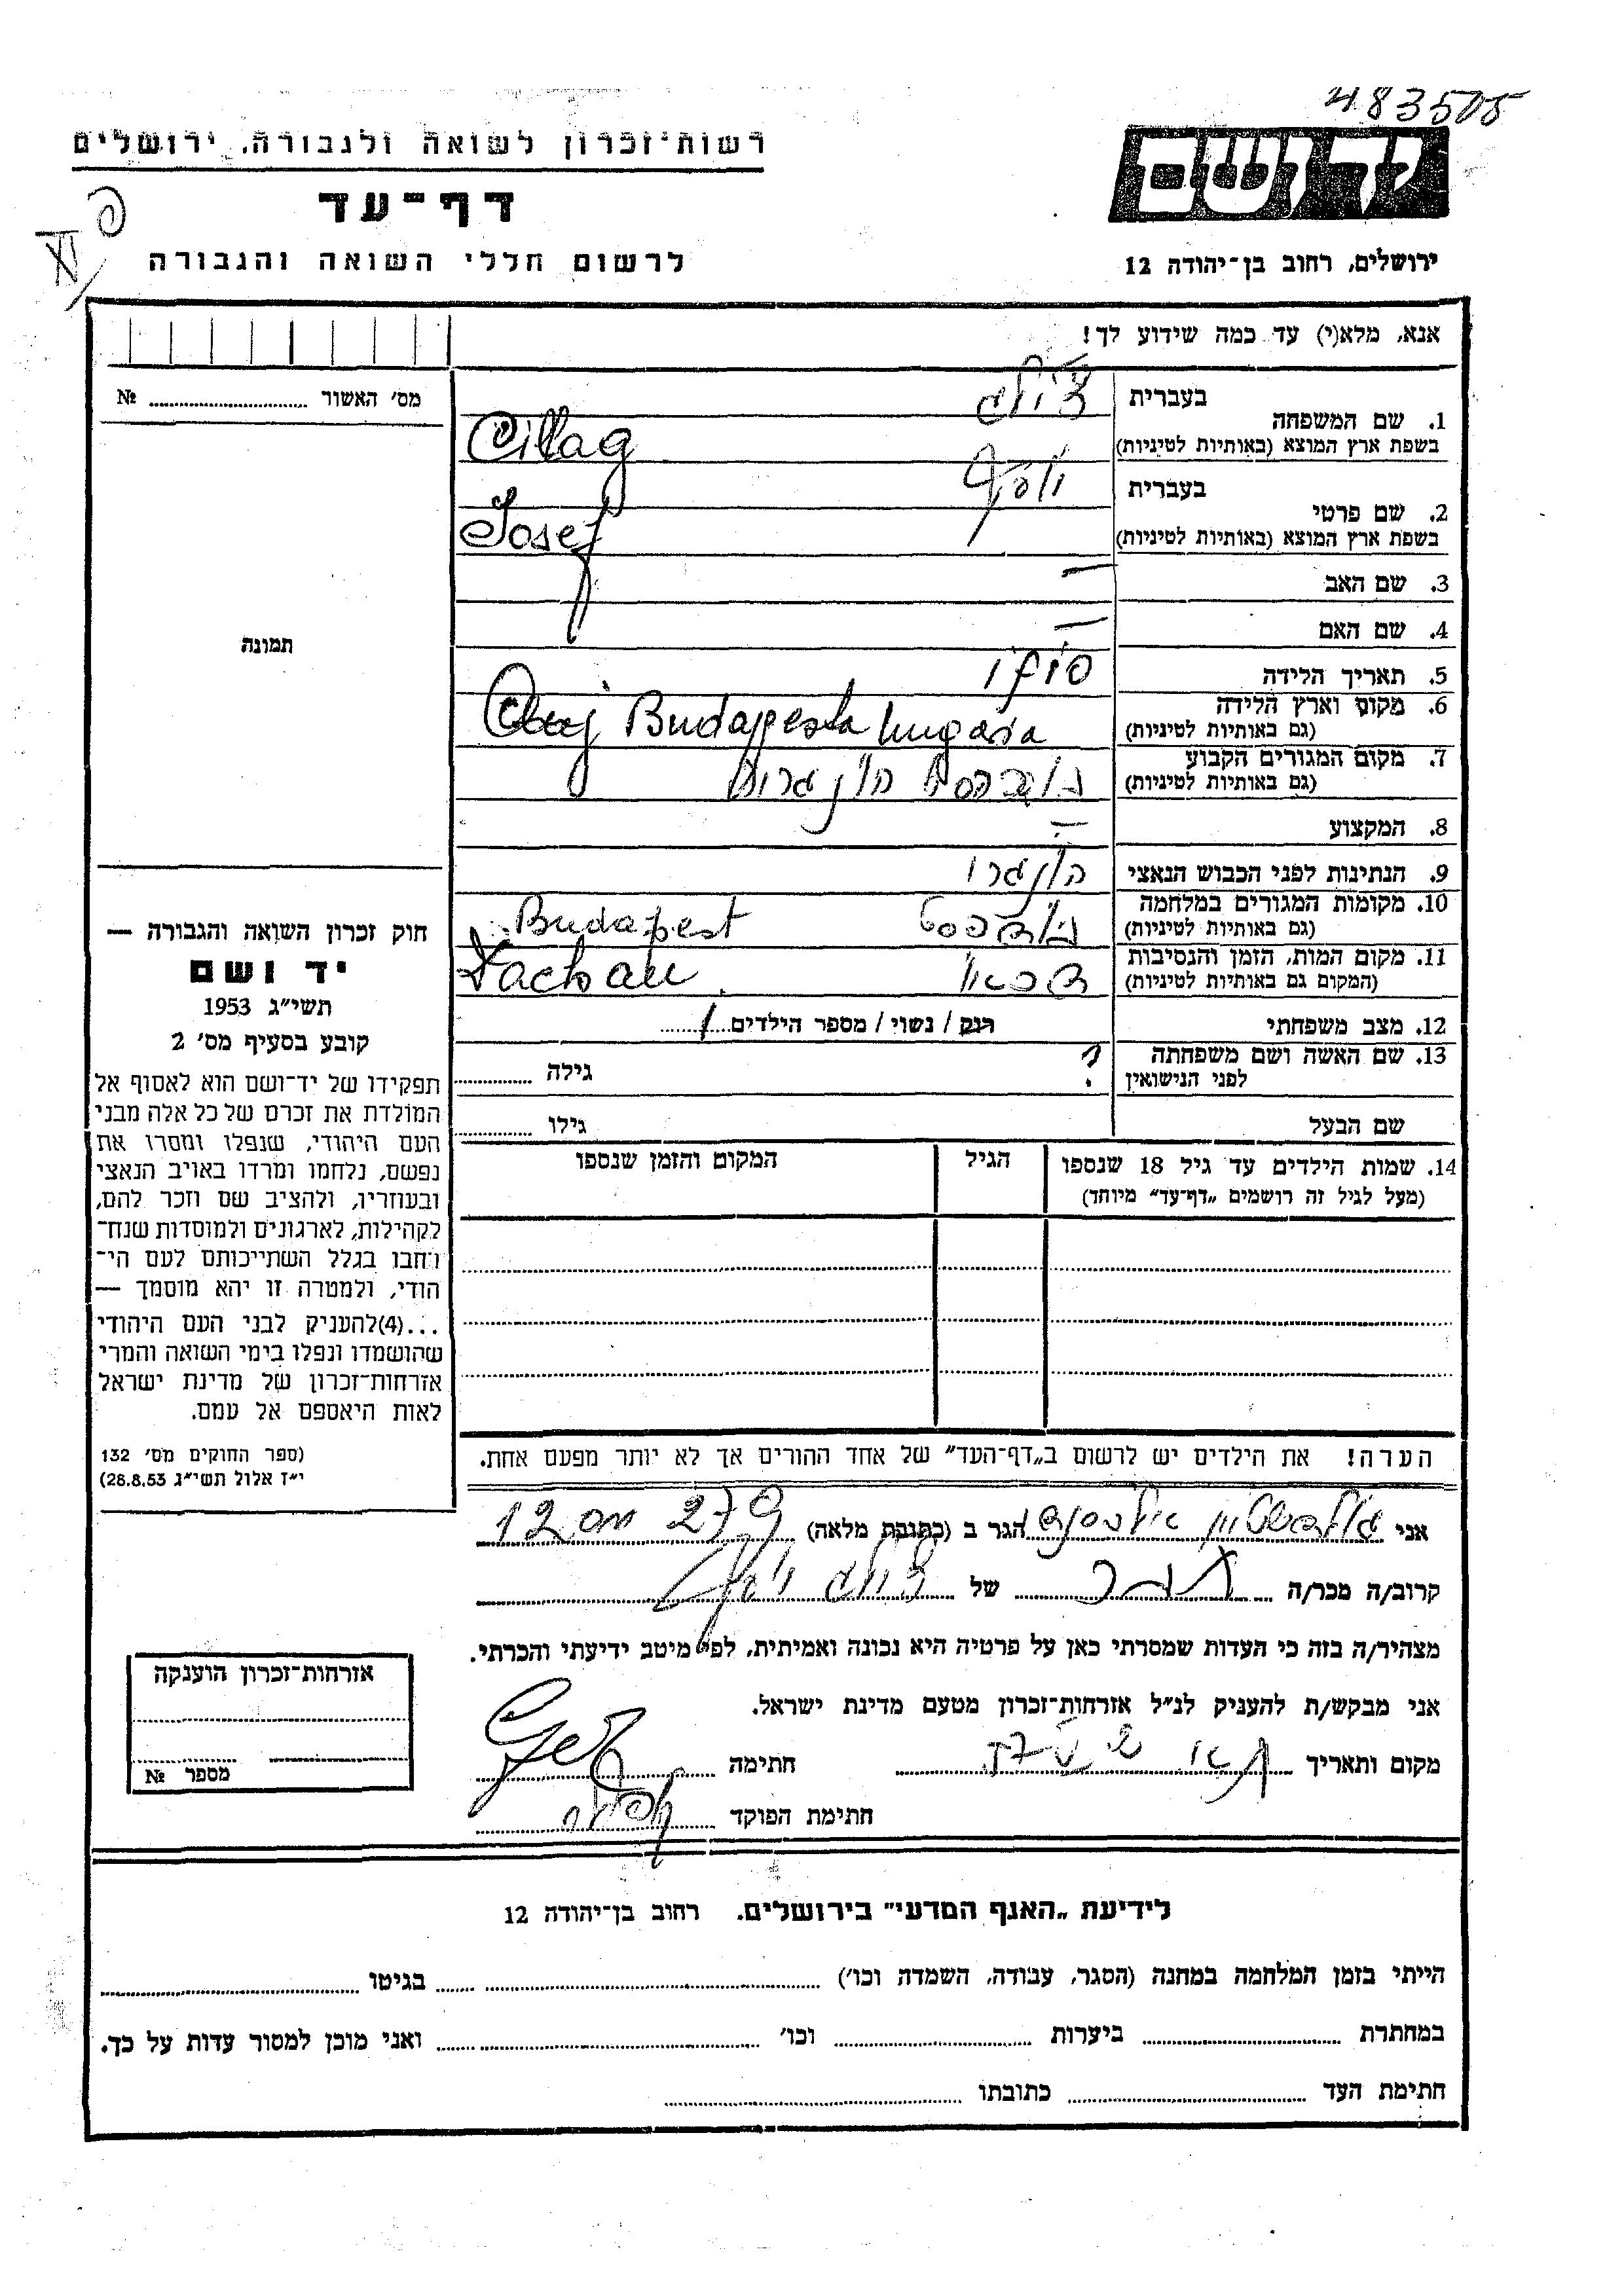 483505
רשות־זכרון לשואה ולגבורה, ירושלים
יד ושם
דף־עד
לרשום חללי השואה והגבורה
ירושלים, רחוב בן־יהודה 12
אנא, מלא(י) עד כמה שידוע לך!
מס׳ האשור № 
תמונה
1. שם המשפחה
בעברית
בשפת ארץ המוצא (באותיות לטיניות) Cillag
2. שם פרטי
בעברית יוסף
בשפת ארץ המוצא (באותיות לטיניות) Josef
3. שם האב —
4. שם האם —
5. תאריך הלידה
6. מקום וארץ הלידה
(גם באותיות לטיניות) Budapesta hungaria
7. מקום המגורים הקבוע
(גם באותיות לטיניות)
8. המקצוע —
9. הנתינות לפני הכבוש הנאצי הונגרי
10. מקומות המגורים במלחמה
(גם באותיות לטיניות) בודפסט Budapest
11. מקום המות, הזמן והנסיבות
(המקום גם באותיות לטיניות) דכאו Dachau
12. מצב משפחתי רוק / נשוי / מספר הילדים 1
13. שם האשה ושם משפחתה ? גילה
לפני הנישואין
שם הבעל גילו
14. שמות הילדים עד גיל 18 שנספו הגיל המקום והזמן שנספו
(מעל לגיל זה רושמים „דף־עד״ מיוחד)
הערה! את הילדים יש לרשום ב„דף־העד״ של אחד ההורים אך לא יותר מפעם אחת.
חוק זכרון השואה והגבורה —
יד ושם
תשי״ג 1953
קובע בסעיף מס׳ 2
תפקידו של יד־ושם הוא לאסוף אל
המולדת את זכרם של כל אלה מבני
העם היהודי, שנפלו ומסרו את
נפשם, נלחמו ומרדו באויב הנאצי
ובעוזריו, ולהציב שם וזכר להם,
לקהילות, לארגונים ולמוסדות שנח־
רחבו בגלל השתייכותם לעם הי־
הודי, ולמטרה זו יהא מוסמך —
...(4)להעניק לבני העם היהודי
שהושמדו ונפלו בימי השואה והמרי
אזרחות־זכרון של מדינת ישראל
לאות היאספם אל עמם.
(ספר החוקים מס׳ 132
י״ז אלול תשי״ג 28.8.53)
אני הגר ב (כתובת מלאה)
קרוב/ה מכר/ה של יוסף
מצהיר/ה בזה כי העדות שמסרתי כאן על פרטיה היא נכונה ואמיתית, לפי מיטב ידיעתי והכרתי.
אני מבקש/ת להעניק לנ״ל אזרחות־זכרון מטעם מדינת ישראל.
מקום ותאריך חתימה
חתימת הפוקד
אזרחות־זכרון הוענקה
מספר №
לידיעת „האגף המדעי״ בירושלים, רחוב בן־יהודה 12
הייתי בזמן המלחמה במחנה (הסגר, עבודה, השמדה וכו׳) בגיטו
במחתרת ביערות וכו׳ ואני מוכן למסור עדות על כך.
חתימת העד כתובתו